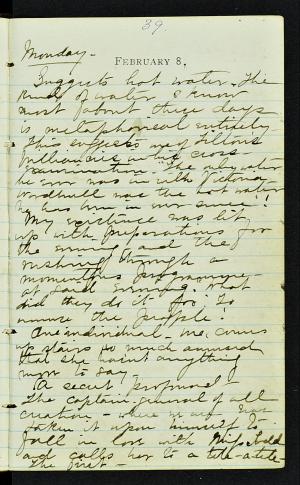 39
Monday.
FEBRUARY 8,
Suggests hot water. The
kind of water I know
most about these days
is metaphorical entirely
This suggests one of Tilton's
brilliancies in his cross-
examination. The only water
he ever was in with Victoria
Woodhull was the hot water
he has been in ever since!!
My existence was lit
up with preparations for
the evening and the
rushing through a
momentous programme
at said evening. what
did they do it for? To
amuse the people!
One individual, me, comes
up stairs so much amused
that she hasn't anything
more to say.
A secret profound!
The captain general of all
creation - has
taken it upon himself to
fall in love with Miss
and calls her to a tete-a-tete
The first -